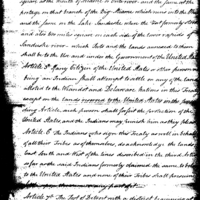 square at the mouth of Miami's or Ome river, and the same at the
portage on that branch of the Big Miami which runs into the Ohio,
and the same on the Lake Sandusky where the Fort formerly stood
and also two miles square on each side of the lower rapids of
Sandusky river. which Posts and the lands annexed to them
shall be to the use and under the Government of the United States.
Article 5. If any Citizen of the United States or other person not
being an Indian shall attempt to settle on any of the Lands
allotted to the Wiandot and Delaware nations in this Treaty
except on the lands reserved to the United States in the
preceding article, such person shall forfeit the protection of the
United States and the Indians may punish him as they please
Article 6. The Indians who sign this Treaty as well in behalf
of all their tribes as of themselves, do acknowledge the lands
East, South and West of the lines described in the third Article
so far as the said Indians formerly claimed the same, to belong
to the United States and none of their tribes shall presume
Article 7th. The Post of Detroit with a district